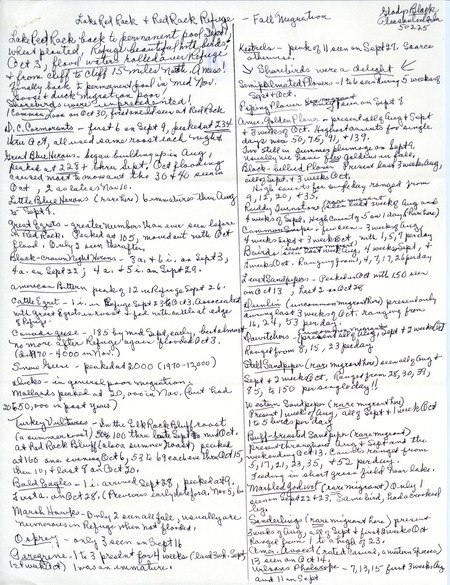 Lake Red Rock & Red Rock Refuge - Fall Migration
Gladys Black
Pleasantville, Iowa
50225
Lake Red Rock back to permanent pool Sept
wheat planted, Refuge beautiful with birds,
Oct 3, flood waters rolled over Refuge
& from cliff to cliff 15 miles North. A mess!
Finally back to permanent pool in mid Nov.
Goose & duck migration poor.
Shorebirds were unprecedented!
1 Common Loon on Oct 30, first one I've seen at Red Rock
D.C. Cormorants - first 6 on Sept 9, peaked at 234
thru Oct, all used same roost each night
Great Blue Herons - began building up in Aug
peaked at 225 thru Sept, Oct flooding
caused most to move on thus 30 to 40 seen
in Oct, 2 as late as Nov 10.
Little Blue Herons (rare here) 6 immatures thru Aug
to Sept 9.
Great Egrets - greater number than ever seen before
in Red Rock. Peaked at 105, moved out with Oct
flood. Only 2 seen thereafter
Black-crown Night Herons - 3 a, & 6 i. on Sept 3,
4 a. on Sept 22; 4 a. & 5 i. on Sept 29.
American Bittern peak of 12 in Refuge Sept 26.
Cattle Egret - 1 i. in Refuge Sept 23 to Oct 3. Associated
with Great Egrets in roost & fed with cattle at edge
of Refuge
Canada geese - 185 by mid Sept, early, but almost
no more after Refuge again flooded Oct 3.
(in 1970 - 4000 in Nov.)
Snow Geese - peaked at 2000 (1970 - 12,000)
Ducks - in general poor migration.
Mallards peaked at 20,000 in Nov. (but had
20 to 50,000 in past years)
Turkey Vultures - In the Elk Rock Bluff roost
(a summer roost) 50 to 100 thru late Sept to mid Oct.
at Red Rock Bluff (also a summer roost) peaked
at 160 one evening Oct 6, 53 to 69 each eve thru Oct 15,
then 10, & last 8 on Oct 20.
Bald Eagles - 1 i. arrived Sept 28, peaked at 9,
2 as late as on Oct 28. (Previous early date for a. Nov 5, 6
Marsh Hawks - Only 2 seen all fall, usually are
numerous in Refuge when not flooded.
Osprey - only 3 seen on Sept 16
Peregrine - 1 to 3 present for 4 weeks
1 was an immature.
Kestrels - peak of 11 seen on Sept 27. Scarce
otherwise.
Shorebirds were a delight
Semipalmated Plovers - 1 to 6 seen during 5 weeks of
Sept & Oct.
Piping Plover 1 seen on Sept 8
Amer. Golden Plover - present all of Aug & Sept
& 3 weeks of Oct. Highest counts for single
days were 50, 75, 91, & 139.
Two still in summer plumage on Sept 9.
Usually we have few Goldens in fall.
Black-bellied Plover Present last 3 weeks Aug,
all of Sept & 3 weeks Oct.
High counts for single day ranged from
9, 15, 20, & 35
Ruddy Turnstone (rare here) 3 weeks of Aug and
4 weeks of Sept. High County of 5 on 1 day (Rare here)
Common Snipe - few seen - 3 weeks Aug,
4 weeks Sept & 3 weeks Oct with 1, 5, 9 per day
Bairds (seen weeks Aug, 4 weeks Sept, &
2 weeks Oct. Ranging from 1, 4, 7, 17, 26 per day
Least Sandpipers - Peaked in Oct with 150 seen
on Oct 13, last 2 on Oct 28
Dunlin (uncommon migrant here) present only
during last 3 weeks of Oct. ranging from
16, 24, 53 per day.
Dowitchers - present all of Aug, Sept & 2 weeks Oct
Ranged from 8, 15, 23 per day
Stilt Sandpiper (rare migrant here) seen all of Aug &
Sept & 2 weeks Oct. Ranged from 28, 30, 39,
85, to 150 per single day!!
Western Sandpiper (rare migrant here)
Present 1 week of Aug, all of Sept & 1 week Oct
1 to 5 birds per day
Buff-breasted Sandpiper (rare migrant)
Present throughout Aug & Sept and the
week ending Oct 13. Counts ranged from
5, 17, 21, 23, 35, & 52 per day.
Feeding in short green field near lake.
Marbled Godwit (rare migrant) Only 1
seen on Sept 22 & 23, Same bird, had a crooked
leg.
Sanderlings (rare migrant here) present
3 weeks of Aug, all of Sept & first 2 weeks Oct
Ranged from 1 to a high of 23.
Amer. Avocet (rated casual, a western species)
13 seen on Oct 14
Wilsons Phalarope - 7, 13, 15 first 3 weeks Aug
and 11 on Sept